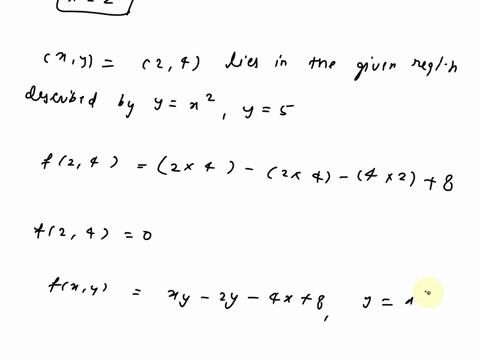 (x,y) = (2,4) lies in the given region
described by y = x², y = 5
f(2,4) = (2×4) - (2×4) - (4×2) + 8
f(2,4) = 0
f(x,y) = xy - 2y - 4x + 8, y =